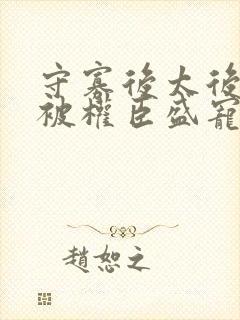 守寡後太後
被權臣盛寵
趙恕之